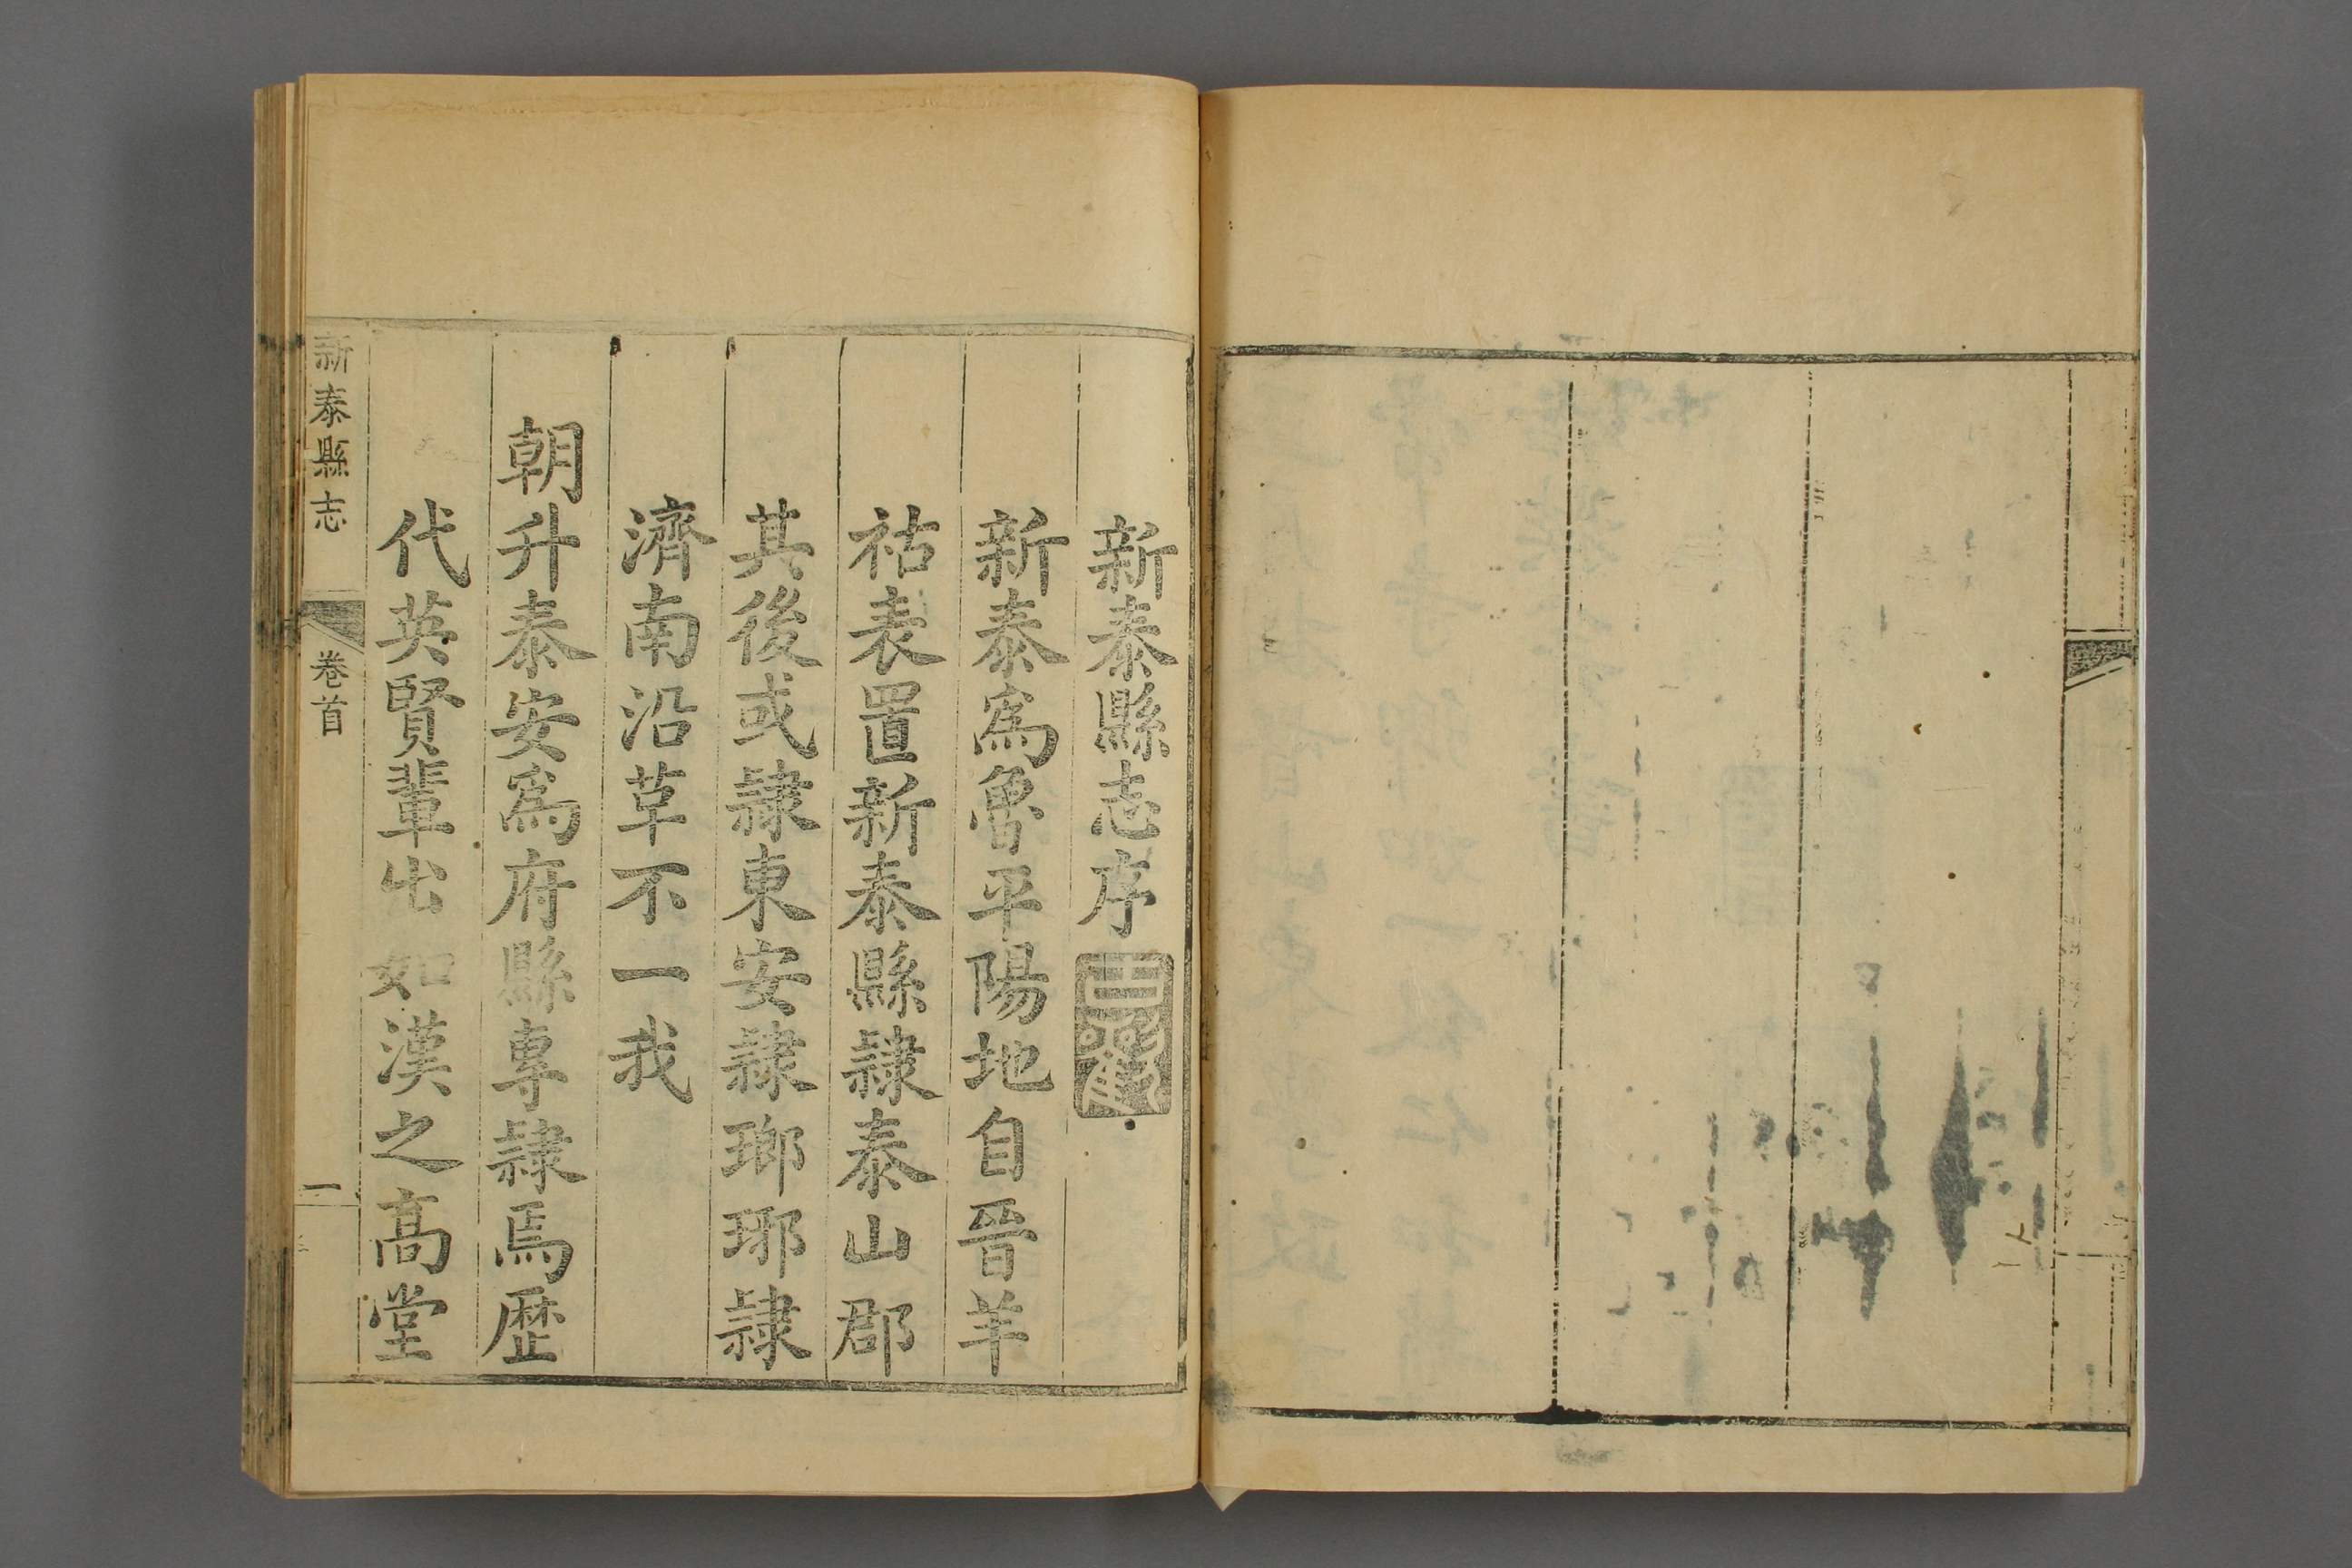 新泰縣志序
新泰爲魯平陽地自晉羊
祜表置新泰縣隸泰山郡
其後或隸東安隸瑯琊隸
濟南沿革不一我
朝升泰安爲府縣專隸焉歷
代英賢輩出如漢之高堂
新泰縣志
卷首
一